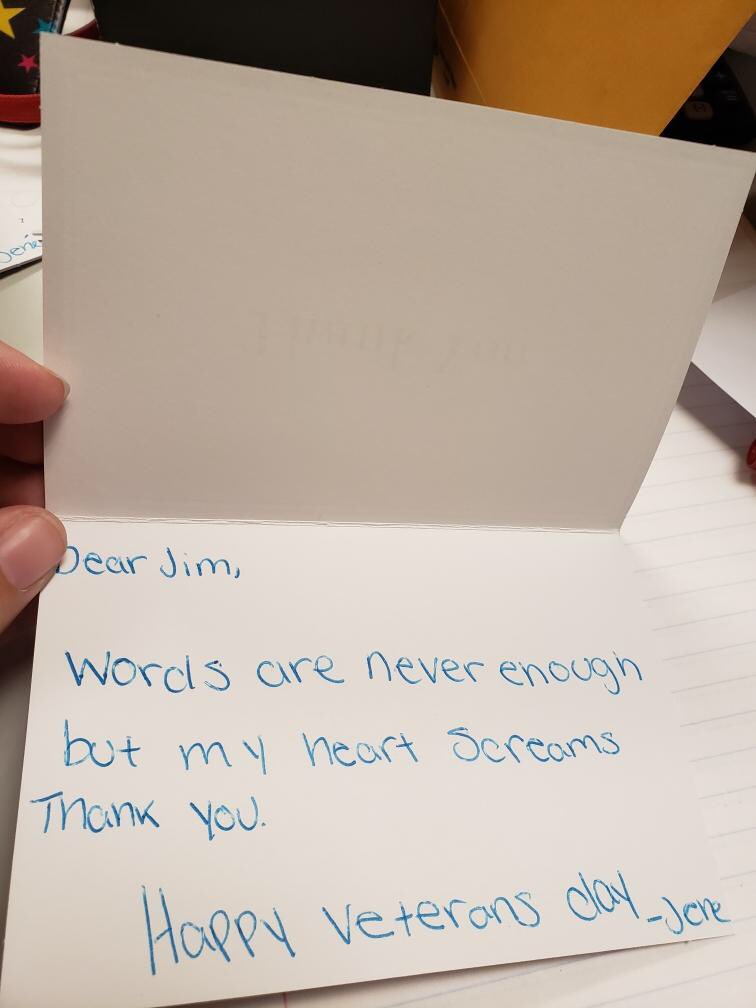 Dear Jim,
Words are never enough
but my heart screams
Thank you.
Happy Veterans day -Jene
Thank You